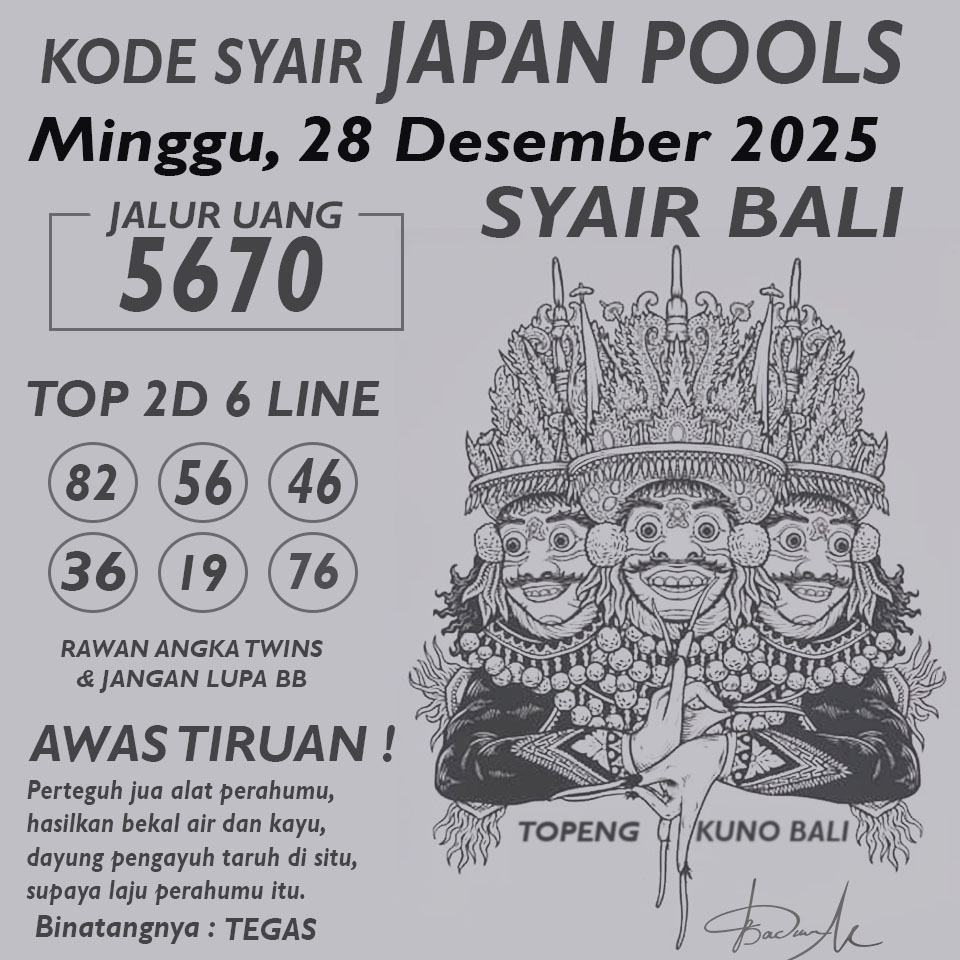 KODE SYAIR JAPAN POOLS
Minggu, 28 Desember 2025
SYAIR BALI
JALUR UANG
5670
TOP 2D 6 LINE
82 56 46
36 19 76
RAWAN ANGKA TWINS
& JANGAN LUPA BB
AWAS TIRUAN !
Perteguh jua alat perahumu,
hasilkan bekal air dan kayu,
dayung pengayuh taruh di situ,
supaya laju perahumu itu.
Binatangnya : TEGAS
TOPENG KUNO BALI